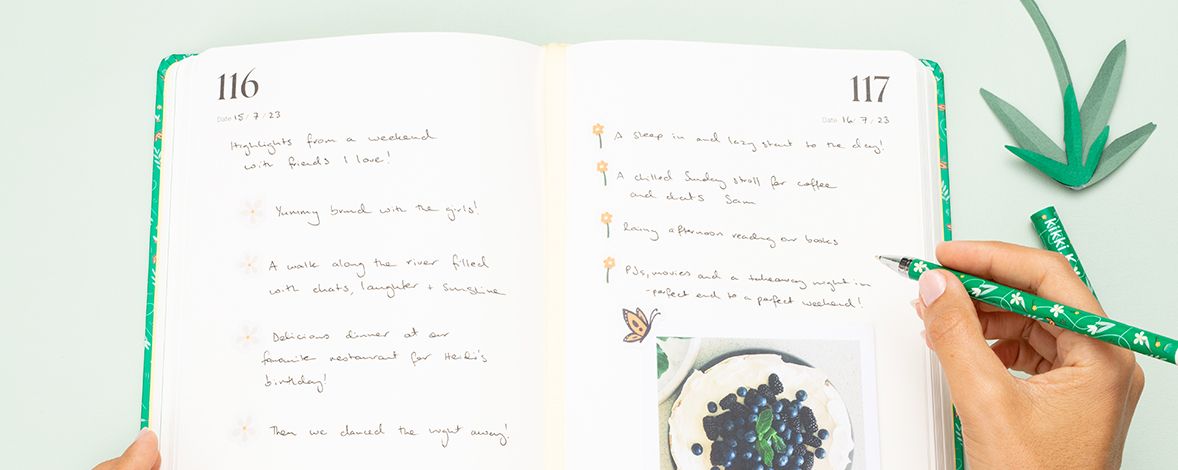 116
Date 15 / 7 / 23
Highlights from a weekend
with friends I love!
Yummy brunch with the girls!
A walk along the river filled
with chats, laughter + Sunshine
Delicious dinner at our
favourite restaurant for Heidi's
birthday!
Then we danced the night away!
117
Date 16 / 7 / 23
A sleep in and lazy start to the day!
A chilled Sunday stroll for coffee
and chats Sam
Rainy afternoon reading our books
PJs, movies and a takeaway night in
- perfect end to a perfect weekend!
kikki K